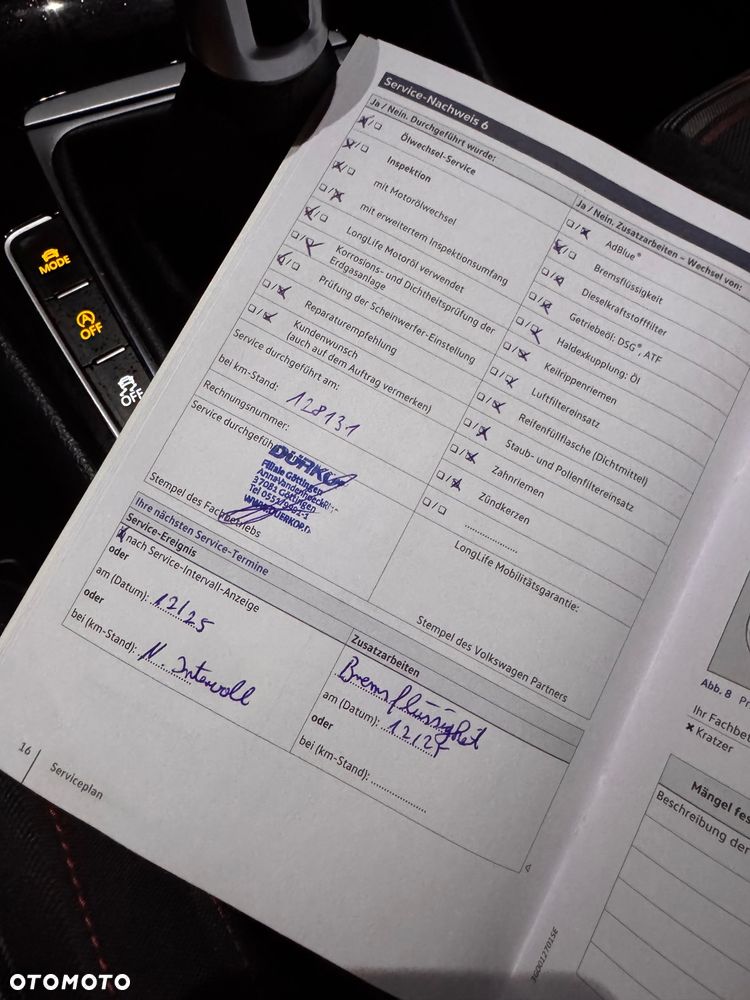 MODE
OFF
OFF
Service-Nachweis 6
Ja / Nein. Durchgeführt wurde:
Ölwechsel-Service
Inspektion
mit Motorölwechsel
mit erweitertem Inspektionsumfang
LongLife Motoröl verwendet
Korrosions- und Dichtheitsprüfung der
Erdgasanlage
Prüfung der Scheinwerfer-Einstellung
Reparaturempfehlung
Kundenwunsch
(auch auf dem Auftrag vermerken)
Service durchgeführt am:
bei km-Stand: 128131
Rechnungsnummer:
Service durchgeführt
DÜRKOP
Filiale Göttingen
37081 Göttingen
WWW.DUERKOP.
Stempel des Fachbetriebs
Ja / Nein. Zusatzarbeiten – Wechsel von:
AdBlue®
Bremsflüssigkeit
Dieselkraftstofffilter
Getriebeöl: DSG®, ATF
Haldexkupplung: Öl
Keilrippenriemen
Luftfiltereinsatz
Reifenfüllflasche (Dichtmittel)
Staub- und Pollenfiltereinsatz
Zahnriemen
Zündkerzen
LongLife Mobilitätsgarantie:
Stempel des Volkswagen Partners
Ihre nächsten Service-Termine
Service-Ereignis
nach Service-Intervall-Anzeige
oder
am (Datum): 12/25
oder
bei (km-Stand): N. Intervall
Zusatzarbeiten
Bremsflüssigket
am (Datum): 12/25
oder
bei (km-Stand):
16
Serviceplan
Abb. 8
Ihr Fachbet
Kratzer
Mängel fes
Beschreibung der
3GD012701SE
OTOMOTO